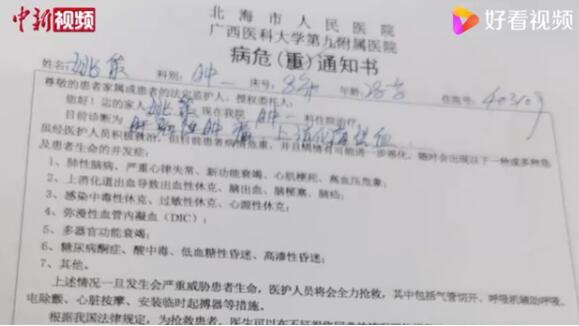 中新视频
好看视频
北海市人民医院
广西医科大学第九附属医院
病危(重)通知书
姓名: 科别: 肿一 床号: 年龄: 住院号:
尊敬的患者家属或患者的法定监护人、授权委托人:
您好!您的家人 现在我院 肿一 科住院治疗。
目前诊断为 上消化道出血
虽经医护人员积极救治,但目前患者病情危重,并且病情有可能进一步恶化,随时会出现以下一种或多种危
及患者生命的并发症:
1、肺性脑病、严重心律失常、新功能衰竭、心肌梗死、高血压危象;
2、上消化道出血导致出血性休克、脑出血、脑梗塞、脑疝;
3、感染中毒性休克、过敏性休克、心源性休克;
4、弥漫性血管内凝血(DIC);
5、多器官功能衰竭;
6、糖尿病酮症、酸中毒、低血糖性昏迷、高渗性昏迷;
7、其他。
上述情况一旦发生会严重威胁患者生命,医护人员将会全力抢救,其中包括气管切开、呼吸机辅助呼吸、
电除颤、心脏按摩、安装临时起搏器等措施。
根据我国法律规定,为抢救患者,医生可以在不征得您同意的